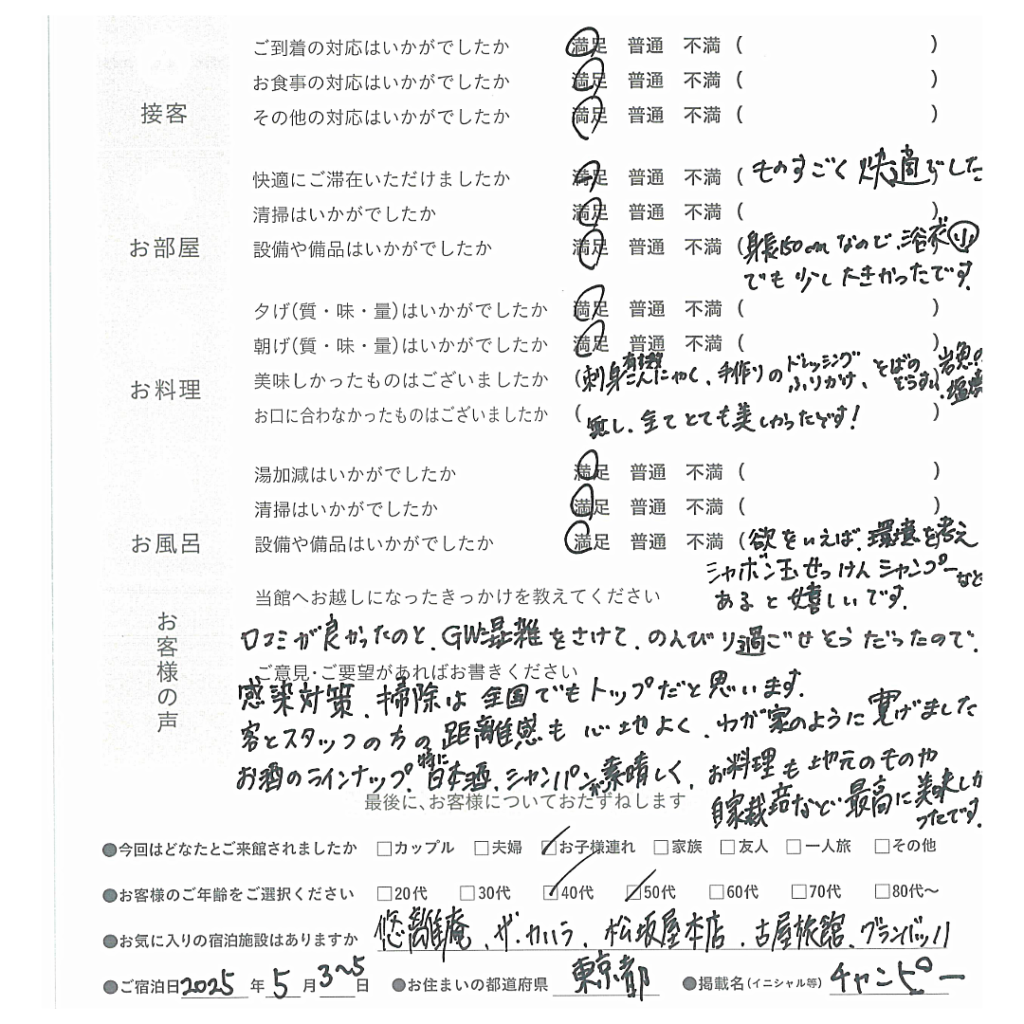 接客
ご到着の対応はいかがでしたか 満足 普通 不満 ( )
お食事の対応はいかがでしたか 満足 普通 不満 ( )
その他の対応はいかがでしたか 満足 普通 不満 ( )
お部屋
快適にご滞在いただけましたか 満足 普通 不満 (ものすごく快適でした
清掃はいかがでしたか 満足 普通 不満 ( )
設備や備品はいかがでしたか 満足 普通 不満 (身長150cmなので、浴衣小
でも少し大きかったです。
お料理
夕げ(質・味・量)はいかがでしたか 満足 普通 不満 ( )
朝げ(質・味・量)はいかがでしたか 満足 普通 不満 ( )
美味しかったものはございましたか (刺身こんにゃく、手作りのドレッシング ふりかけ、そばの 岩魚の塩焼
お口に合わなかったものはございましたか ( )
無し、全てとても美しかったです!
お風呂
湯加減はいかがでしたか 満足 普通 不満 ( )
清掃はいかがでしたか 満足 普通 不満 ( )
設備や備品はいかがでしたか 満足 普通 不満 (欲をいえば、環境を考え
シャボン玉せっけんシャンプーなど
あると嬉しいです。
お客様の声
当館へお越しになったきっかけを教えてください
口コミが良かったのと、GW混雑をさけて、のんびり過ごせそうだったので、
ご意見・ご要望があればお書きください
感染対策、掃除は全国でもトップだと思います。
客とスタッフの方の距離感も心地よく、わが家のように寛げました
お酒のラインナップ、特に日本酒、シャンパンが素晴しく、お料理も地元のものや
自家栽培など最高に美味しかったです。
最後に、お客様についておたずねします
●今回はどなたとご来館されましたか □カップル □夫婦 ☑お子様連れ □家族 □友人 □一人旅 □その他
●お客様のご年齢をご選択ください □20代 □30代 ☑40代 ☑50代 □60代 □70代 □80代〜
●お気に入りの宿泊施設はありますか 悠離庵、ザ・カハラ、松坂屋本店、古屋旅館、グランバッハ
●ご宿泊日 2025年5月3〜5日 ●お住まいの都道府県 東京都 ●掲載名(イニシャル等) チャンピー